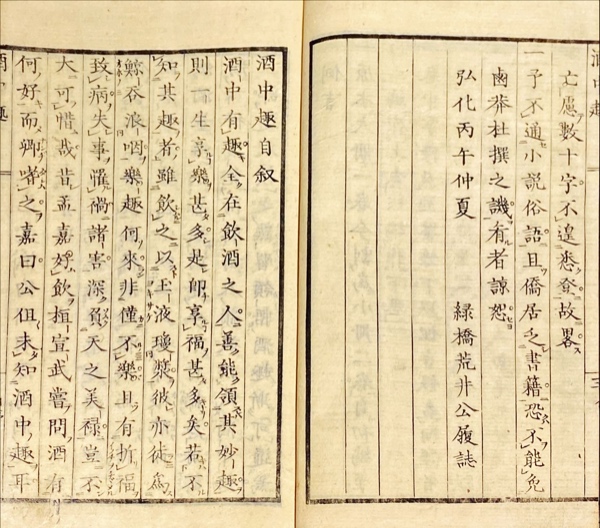 亡慮數十字不遑悉登故畧
一予不通小説俗語且僑居之書籍恐不能免
鹵莽杜撰之譏有者諒恕
弘化丙午仲夏
緑橋荒井公履誌
酒中趣自叙
酒中有趣全在飲酒之人善能領其妙趣
則一生享樂甚多是卽享福甚多矣若不
知其趣者雖飲之以玉液瓊漿彼亦徒爲
鯨吞浪咽樂趣何來非僅不樂且有折福
致病失事惟禍諸害深負天之美禄豈不
大可惜哉昔孟嘉好飲桓宣武嘗問酒有
何好而卿嗜之嘉曰公但未知酒中趣耳